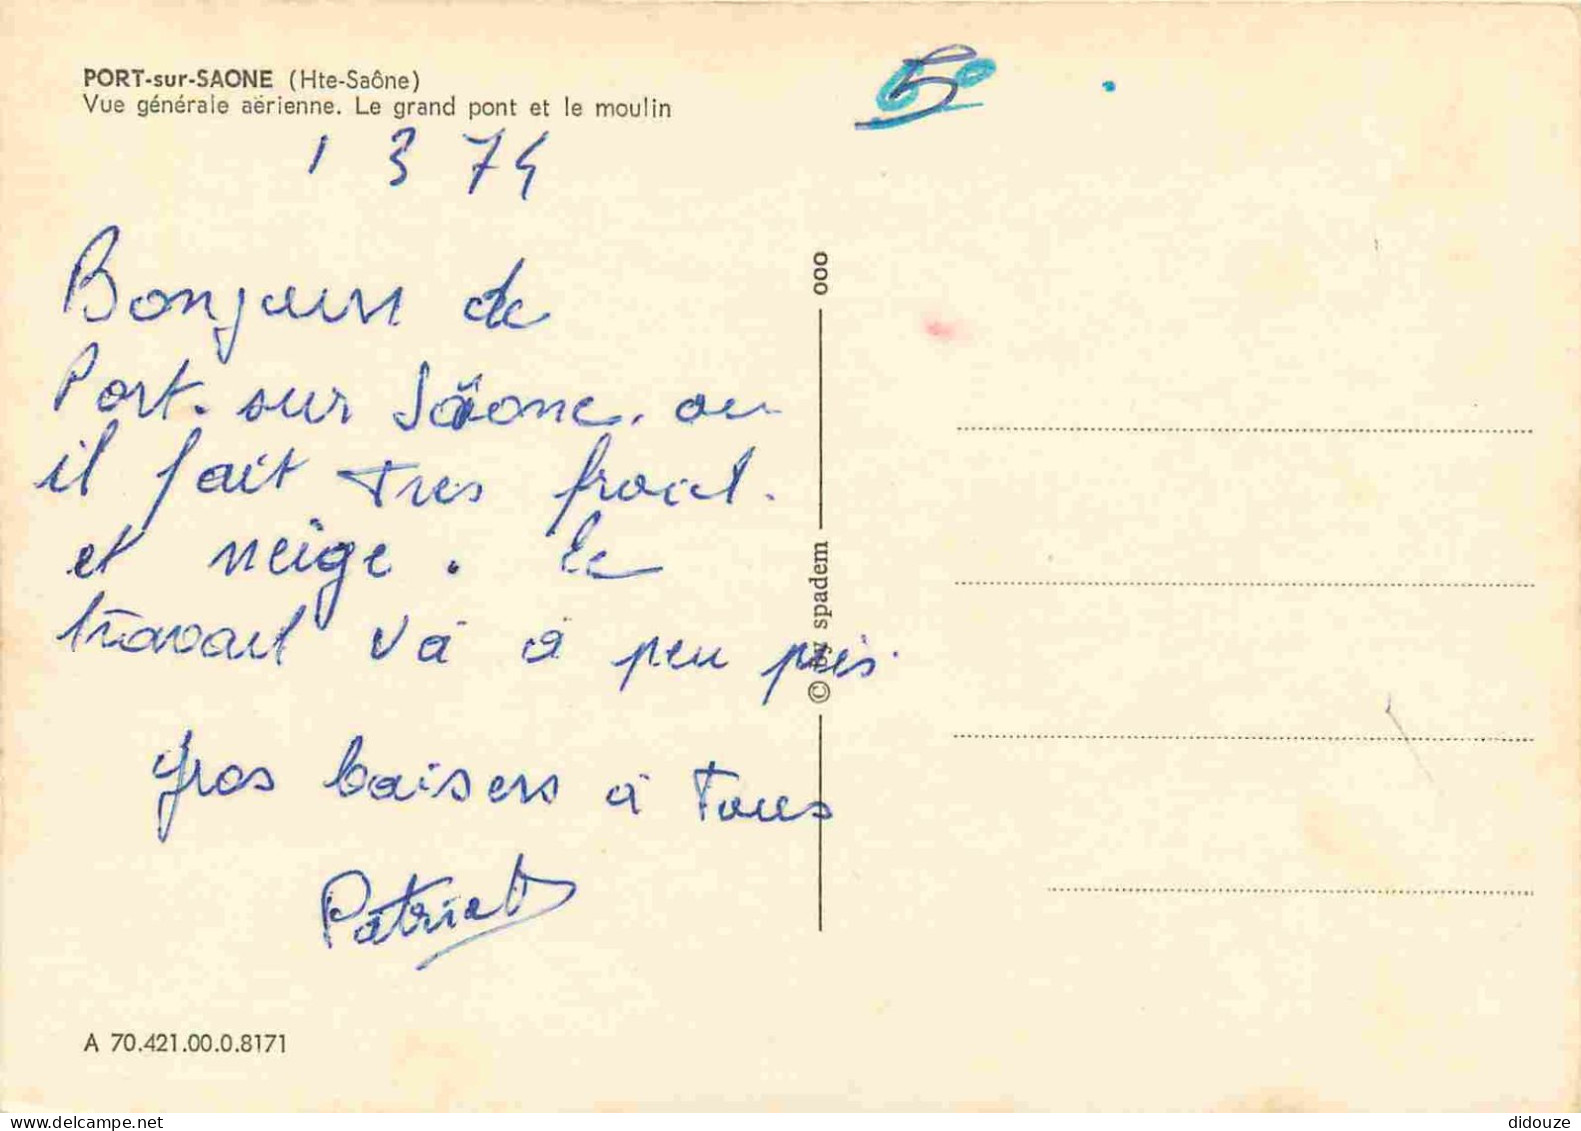 PORT-sur-SAONE (Hte-Saône)
Vue générale aërienne. Le grand pont et le moulin
50
1 3 74
Bonjour de
Port. sur Sâone. ou
il fait tres froid.
et neige. le
travail và à peu près.
Gros baisers à Tous
A 70.421.00.0.8171
© by spadem
000
www.delcampe.net
didouze